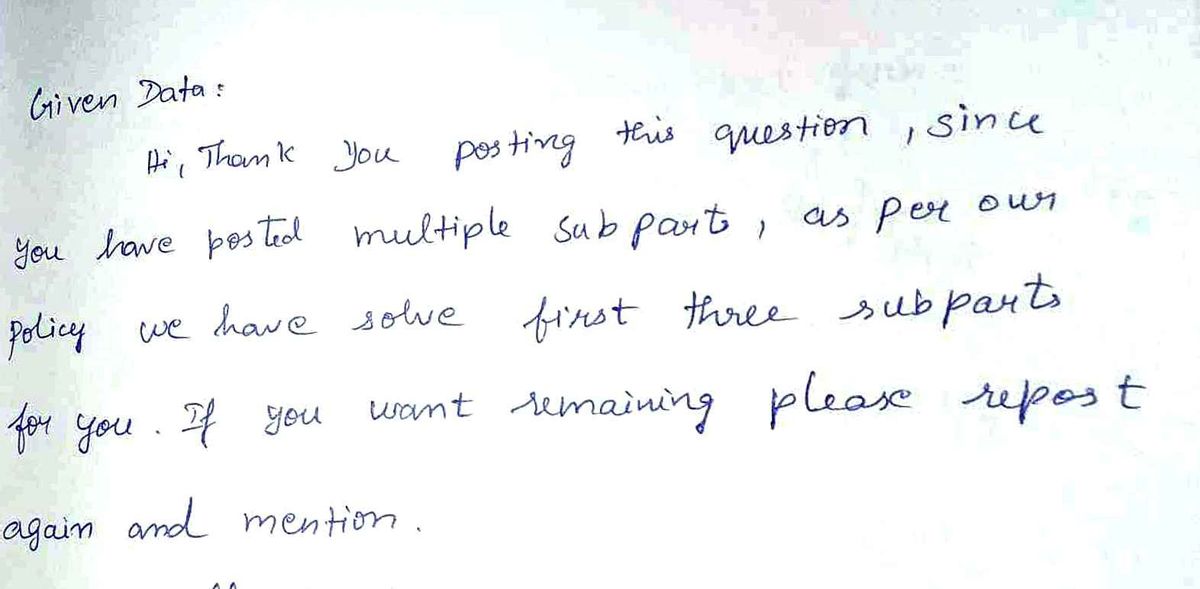 Given Data :
Hi, Thank you posting this question, since
you have posted multiple subparts, as per our
policy we have solve first three subparts
for you. If you want remaining please repost
again and mention.